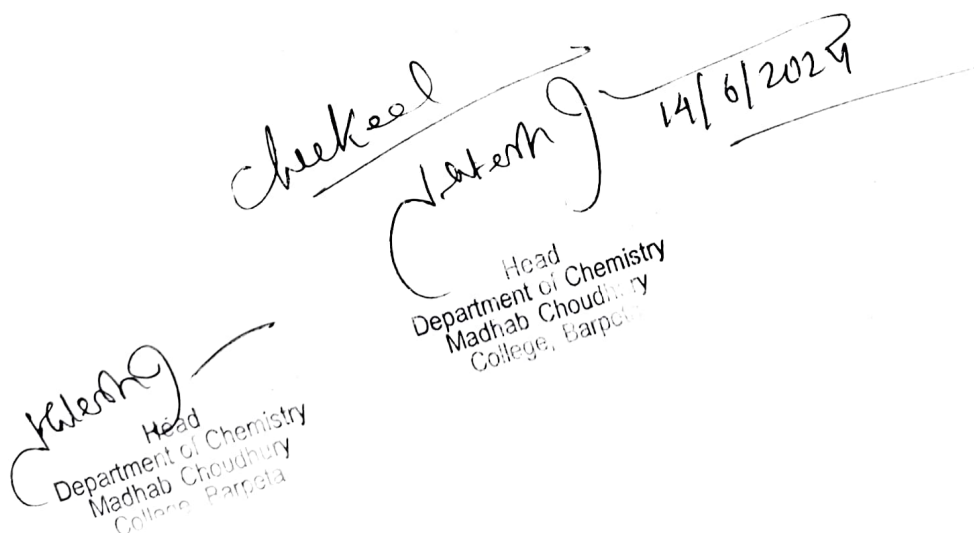 Checked
14/6/2024
Head
Department of Chemistry
Madhab Choudhury
College, Barpeta
Head
Department of Chemistry
Madhab Choudhury
College, Barpeta